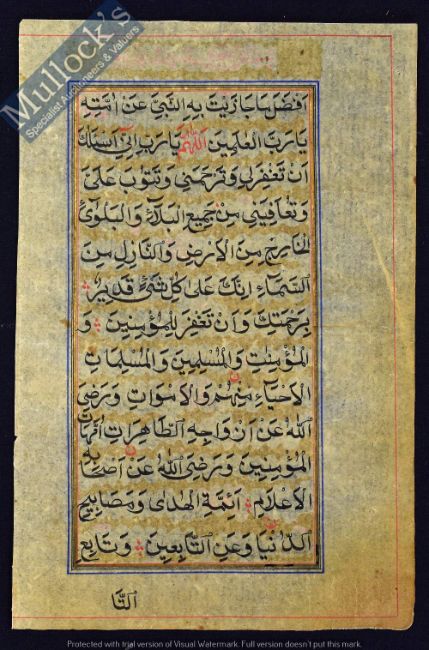 Mullock's
Specialist Auctioneers & Valuers
اَفْضَلَ مَا جَازَيْتَ بِهِ النَّبِيَّ عَنْ اُمَّتِهِ
يَا رَبَّ الْعٰلَمِيْنَ اَللّٰهُمَّ يَا رَبِّ اِنِّيْ اَسْئَلُكَ
اَنْ تَغْفِرَلِيْ وَ تَرْحَمَنِيْ وَ تَتُوْبَ عَلَيَّ
وَ تُعَافِيَنِيْ مِنْ جَمِيْعِ الْبَلَآءِ وَ الْبَلْوَاۤءِ
الْخَارِجِ مِنَ الْاَرْضِ وَ النَّازِلِ مِنَ
السَّمَآءِ اِنَّكَ عَلٰى كُلِّ شَيْءٍ قَدِيْرٌ
بِرَحْمَتِكَ وَ اَنْ تَغْفِرَ لِلْمُؤْمِنِيْنَ وَ
الْمُؤْمِنَاتِ وَ الْمُسْلِمِيْنَ وَ الْمُسْلِمَاتِ
الْاَحْيَآءِ مِنْهُمْ وَ الْاَمْوَاتِ وَ رَضِيَ
اللّٰهُ عَنْ اَزْوَاجِهِ الطَّاهِرَاتِ اُمَّهَاتِ
الْمُؤْمِنِيْنَ وَ رَضِيَ اللّٰهُ عَنْ اَصْحَابِهِ
الْاَعْلَامِ اَئِمَّةِ الْهُدٰى وَ مَصَابِيْحِ
الدُّنْيَا وَ عَنِ التَّابِعِيْنَ وَ تَابِعِ
التَّا
Protected with trial version of Visual Watermark. Full version doesn't put this mark.